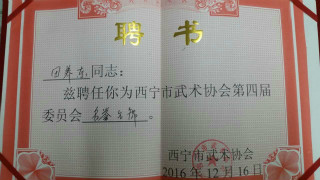 聘书
同志：
兹聘任你为西宁市武术协会第四届
委员会名誉主席。
西宁市武术协会
2016年12月16日